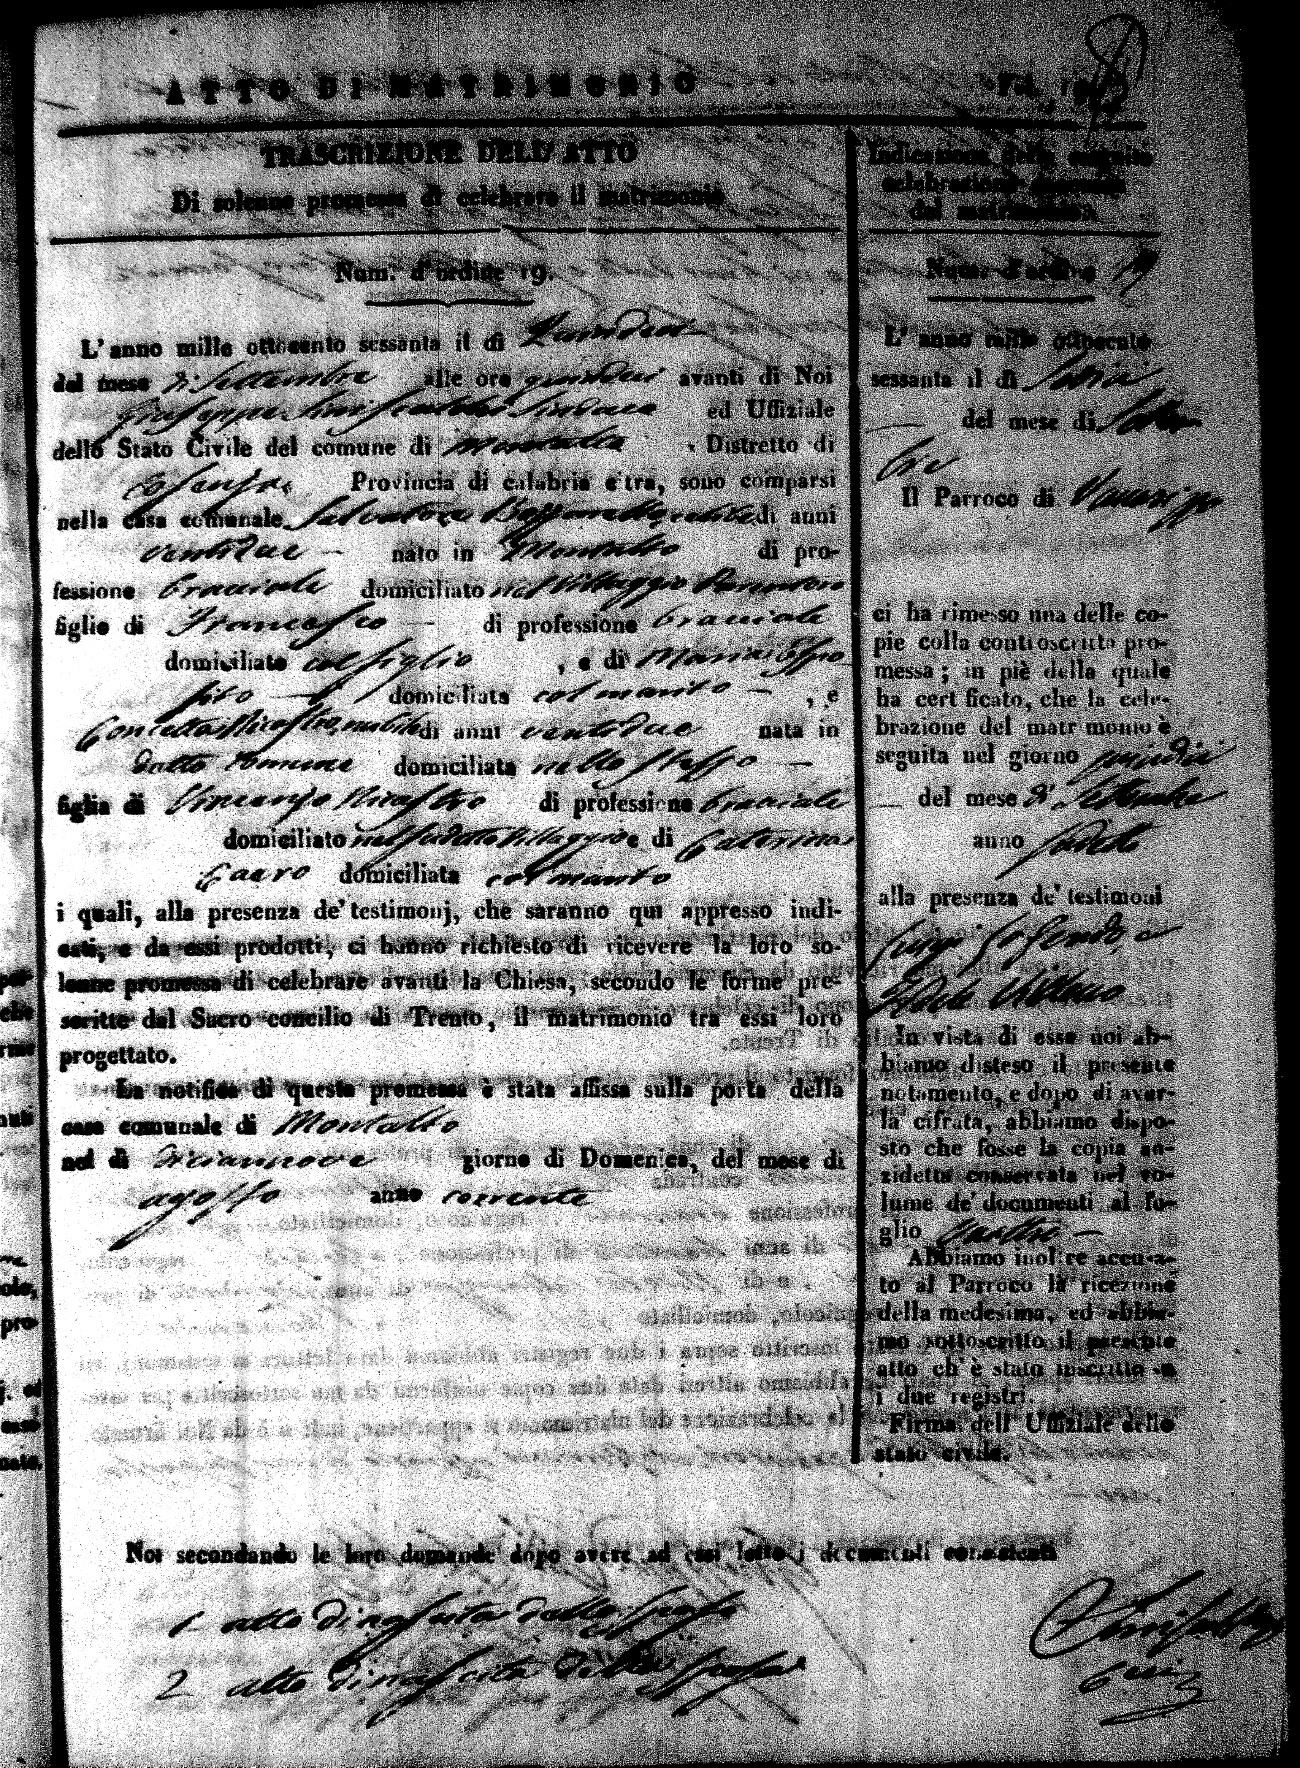 ATTO DI MATRIMONIO
TRASCRIZIONE DELL' ATTO
Di solenne promessa di celebrare il matrimonio
Num. d'ordine 19.
L'anno mille ottocento sessanta il di Quindici
del mese di Settembre alle ore quindici avanti di Noi
Giuseppe Sindaco ed Uffiziale
dello Stato Civile del comune di Montalto , Distretto di
Cosenza Provincia di calabria citra, sono comparsi
nella casa comunale Salvatore di anni
ventidue nato in Montalto di pro-
fessione bracciale domiciliato nel Villaggio
figlio di Francesco di professione bracciale
domiciliato col figlio , e di Maria Espo
sito domiciliata col marito , e
Concetta Nicastro, nubile di anni ventidue nata in
detto comune domiciliata nello stesso
figlia di Vincenzo Nicastro di professione bracciale
domiciliato nel sudetto Villaggio e di Caterina
domiciliata col marito
i quali, alla presenza de' testimonj, che saranno qui appresso indi-
cati, e da essi prodotti, ci hanno richiesto di ricevere la loro so-
lenne promessa di celebrare avanti la Chiesa, secondo le forme pre-
scritte dal Sacro concilio di Trento, il matrimonio tra essi loro
progettato.
La notifica di questa promessa è stata affissa sulla porta della
casa comunale di Montalto
nel dì diciannove giorno di Domenica, del mese di
agosto anno corrente
Noi secondando le loro domande dopo avere ad essi letto i documenti consistenti
1 atto di nascita dello sposo
2 atto di nascita della sposa
Indicazione della seguita
celebrazione canonica
del matrimonio.
Num. d'ordine 19
L' anno mille ottocento
sessanta il dì Sedici
del mese di Settem
bre
Il Parroco di
ci ha rimesso una delle co-
pie colla controscritta pro-
messa; in piè della quale
ha certificato, che la cele-
brazione del matrimonio è
seguita nel giorno quindici
del mese di Settembre
anno sudetto
alla presenza de' testimoni
Luigi
Fedele
In vista di essa noi ab-
biamo disteso il presente
notamento, e dopo di aver-
la cifrata, abbiamo dispo-
sto che fosse la copia an-
zidetta conservata nel vo-
lume de' documenti al fo-
glio
Abbiamo inoltre accusa-
to al Parroco la ricezione
della medesima, ed abbia-
mo sottoscritto il presente
atto ch'è stato inscritto su
i due registri.
Firma dell' Uffiziale dello
stato civile.